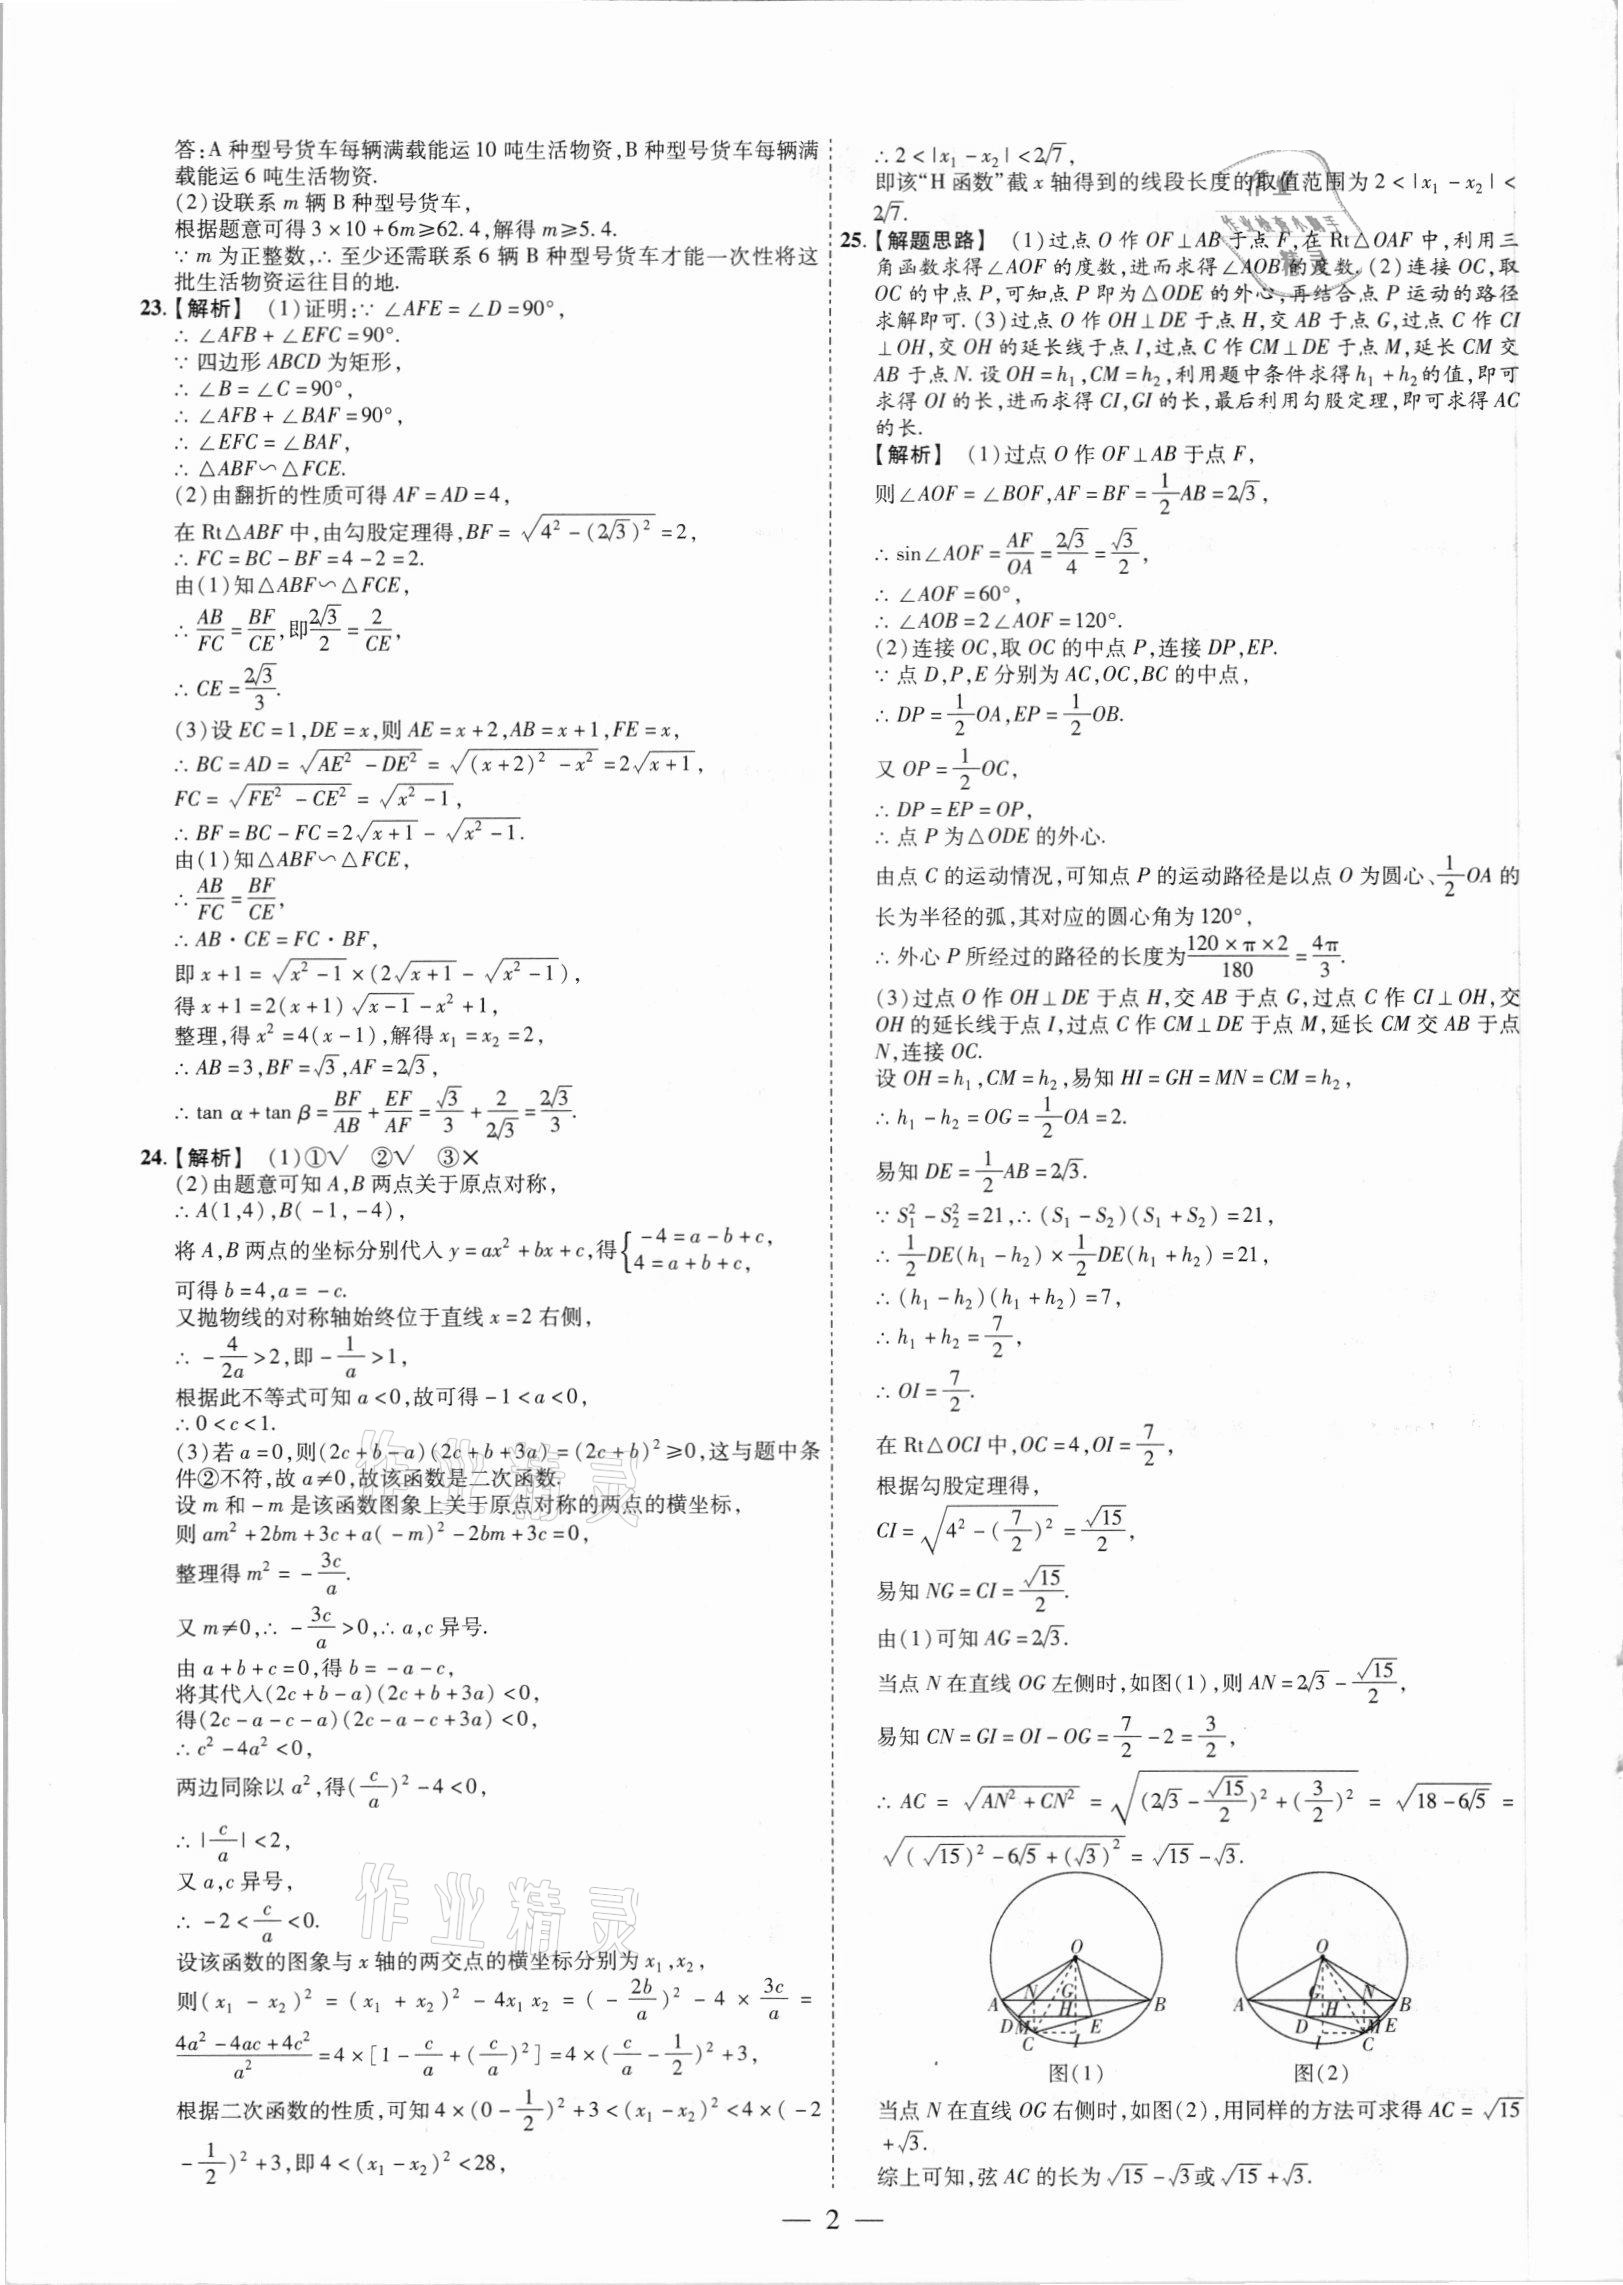 答:A 种型号货车每辆满载能运 10 吨生活物资,B 种型号货车每辆满
载能运 6 吨生活物资.
(2)设联系 m 辆 B 种型号货车,
根据题意可得 3×10+6m≥62.4,解得 m≥5.4.
∵ m 为正整数,∴ 至少还需联系 6 辆 B 种型号货车才能一次性将这
批生活物资运往目的地.
23.【解析】 (1)证明:∵ ∠AFE=∠D=90°,
∴ ∠AFB+∠EFC=90°.
∵ 四边形 ABCD 为矩形,
∴ ∠B=∠C=90°,
∴ ∠AFB+∠BAF=90°,
∴ ∠EFC=∠BAF,
∴ △ABF∽△FCE.
(2)由翻折的性质可得 AF=AD=4,
在 Rt△ABF 中,由勾股定理得,BF=√(4²-(2√3)²)=2,
∴ FC=BC-BF=4-2=2.
由(1)知△ABF∽△FCE,
∴ AB/FC=BF/CE,即2√3/2=2/CE,
∴ CE=2√3/3.
(3)设 EC=1,DE=x,则 AE=x+2,AB=x+1,FE=x,
∴ BC=AD=√(AE²-DE²)=√((x+2)²-x²)=2√(x+1),
FC=√(FE²-CE²)=√(x²-1),
∴ BF=BC-FC=2√(x+1)-√(x²-1).
由(1)知△ABF∽△FCE,
∴ AB/FC=BF/CE,
∴ AB·CE=FC·BF,
即 x+1=√(x²-1)×(2√(x+1)-√(x²-1)),
得 x+1=2(x+1)√(x-1)-x²+1,
整理,得 x²=4(x-1),解得 x₁=x₂=2,
∴ AB=3,BF=√3,AF=2√3,
∴ tan α+tan β=BF/AB+EF/AF=√3/3+2/(2√3)=2√3/3.
24.【解析】 (1)①√ ②√ ③×
(2)由题意可知 A,B 两点关于原点对称,
∴ A(1,4),B(-1,-4),
将 A,B 两点的坐标分别代入 y=ax²+bx+c,得{-4=a-b+c,
4=a+b+c,
可得 b=4,a=-c.
又抛物线的对称轴始终位于直线 x=2 右侧,
∴ -4/2a>2,即-1/a>1,
根据此不等式可知 a<0,故可得-1<a<0,
∴ 0<c<1.
(3)若 a=0,则(2c+b-a)(2c+b+3a)=(2c+b)²≥0,这与题中条
件②不符,故 a≠0,故该函数是二次函数.
设 m 和-m 是该函数图象上关于原点对称的两点的横坐标,
则 am²+2bm+3c+a(-m)²-2bm+3c=0,
整理得 m²=-3c/a.
又 m≠0,∴ -3c/a>0,∴ a,c 异号.
由 a+b+c=0,得 b=-a-c,
将其代入(2c+b-a)(2c+b+3a)<0,
得(2c-a-c-a)(2c-a-c+3a)<0,
∴ c²-4a²<0,
两边同除以 a²,得(c/a)²-4<0,
∴ |c/a|<2,
又 a,c 异号,
∴ -2<c/a<0.
设该函数的图象与 x 轴的两交点的横坐标分别为 x₁,x₂,
则(x₁-x₂)²=(x₁+x₂)²-4x₁x₂=(-2b/a)²-4×3c/a=
(4a²-4ac+4c²)/a²=4×[1-c/a+(c/a)²]=4×(c/a-1/2)²+3,
根据二次函数的性质,可知 4×(0-1/2)²+3<(x₁-x₂)²<4×(-2
-1/2)²+3,即 4<(x₁-x₂)²<28,
∴ 2<|x₁-x₂|<2√7,
即该“H 函数”截 x 轴得到的线段长度的取值范围为 2<|x₁-x₂|<
2√7.
25.【解题思路】 (1)过点 O 作 OF⊥AB 于点 F,在 Rt△OAF 中,利用三
角函数求得∠AOF 的度数,进而求得∠AOB 的度数.(2)连接 OC,取
OC 的中点 P,可知点 P 即为△ODE 的外心,再结合点 P 运动的路径
求解即可.(3)过点 O 作 OH⊥DE 于点 H,交 AB 于点 G,过点 C 作 CI
⊥OH,交 OH 的延长线于点 I,过点 C 作 CM⊥DE 于点 M,延长 CM 交
AB 于点 N.设 OH=h₁,CM=h₂,利用题中条件求得 h₁+h₂的值,即可
求得 OI 的长,进而求得 CI,GI 的长,最后利用勾股定理,即可求得 AC
的长.
【解析】 (1)过点 O 作 OF⊥AB 于点 F,
则∠AOF=∠BOF,AF=BF=1/2AB=2√3,
∴ sin∠AOF=AF/OA=2√3/4=√3/2,
∴ ∠AOF=60°,
∴ ∠AOB=2∠AOF=120°.
(2)连接 OC,取 OC 的中点 P,连接 DP,EP.
∵ 点 D,P,E 分别为 AC,OC,BC 的中点,
∴ DP=1/2OA,EP=1/2OB.
又 OP=1/2OC,
∴ DP=EP=OP,
∴ 点 P 为△ODE 的外心.
由点 C 的运动情况,可知点 P 的运动路径是以点 O 为圆心、1/2OA 的
长为半径的弧,其对应的圆心角为 120°,
∴ 外心 P 所经过的路径的长度为(120×π×2)/180=4π/3.
(3)过点 O 作 OH⊥DE 于点 H,交 AB 于点 G,过点 C 作 CI⊥OH,交
OH 的延长线于点 I,过点 C 作 CM⊥DE 于点 M,延长 CM 交 AB 于点
N,连接 OC.
设 OH=h₁,CM=h₂,易知 HI=GH=MN=CM=h₂,
∴ h₁-h₂=OG=1/2OA=2.
易知 DE=1/2AB=2√3.
∵ S₁²-S₂²=21,∴ (S₁-S₂)(S₁+S₂)=21,
∴ 1/2DE(h₁-h₂)×1/2DE(h₁+h₂)=21,
∴ (h₁-h₂)(h₁+h₂)=7,
∴ h₁+h₂=7/2,
∴ OI=7/2.
在 Rt△OCI 中,OC=4,OI=7/2,
根据勾股定理得,
CI=√(4²-(7/2)²)=√15/2,
易知 NG=CI=√15/2.
由(1)可知 AG=2√3.
当点 N 在直线 OG 左侧时,如图(1),则 AN=2√3-√15/2,
易知 CN=GI=OI-OG=7/2-2=3/2,
∴ AC=√(AN²+CN²)=√((2√3-√15/2)²+(3/2)²)=√(18-6√5)=
√((√15)²-6√5+(√3)²)=√15-√3.
O
N G
A B
H
D M E
C I
图(1)
O
G N
A B
H
D M E
I C
图(2)
当点 N 在直线 OG 右侧时,如图(2),用同样的方法可求得 AC=√15
+√3.
综上可知,弦 AC 的长为√15-√3或√15+√3.
— 2 —
作业精灵
作业精灵
作业
作业检查小助手
精灵